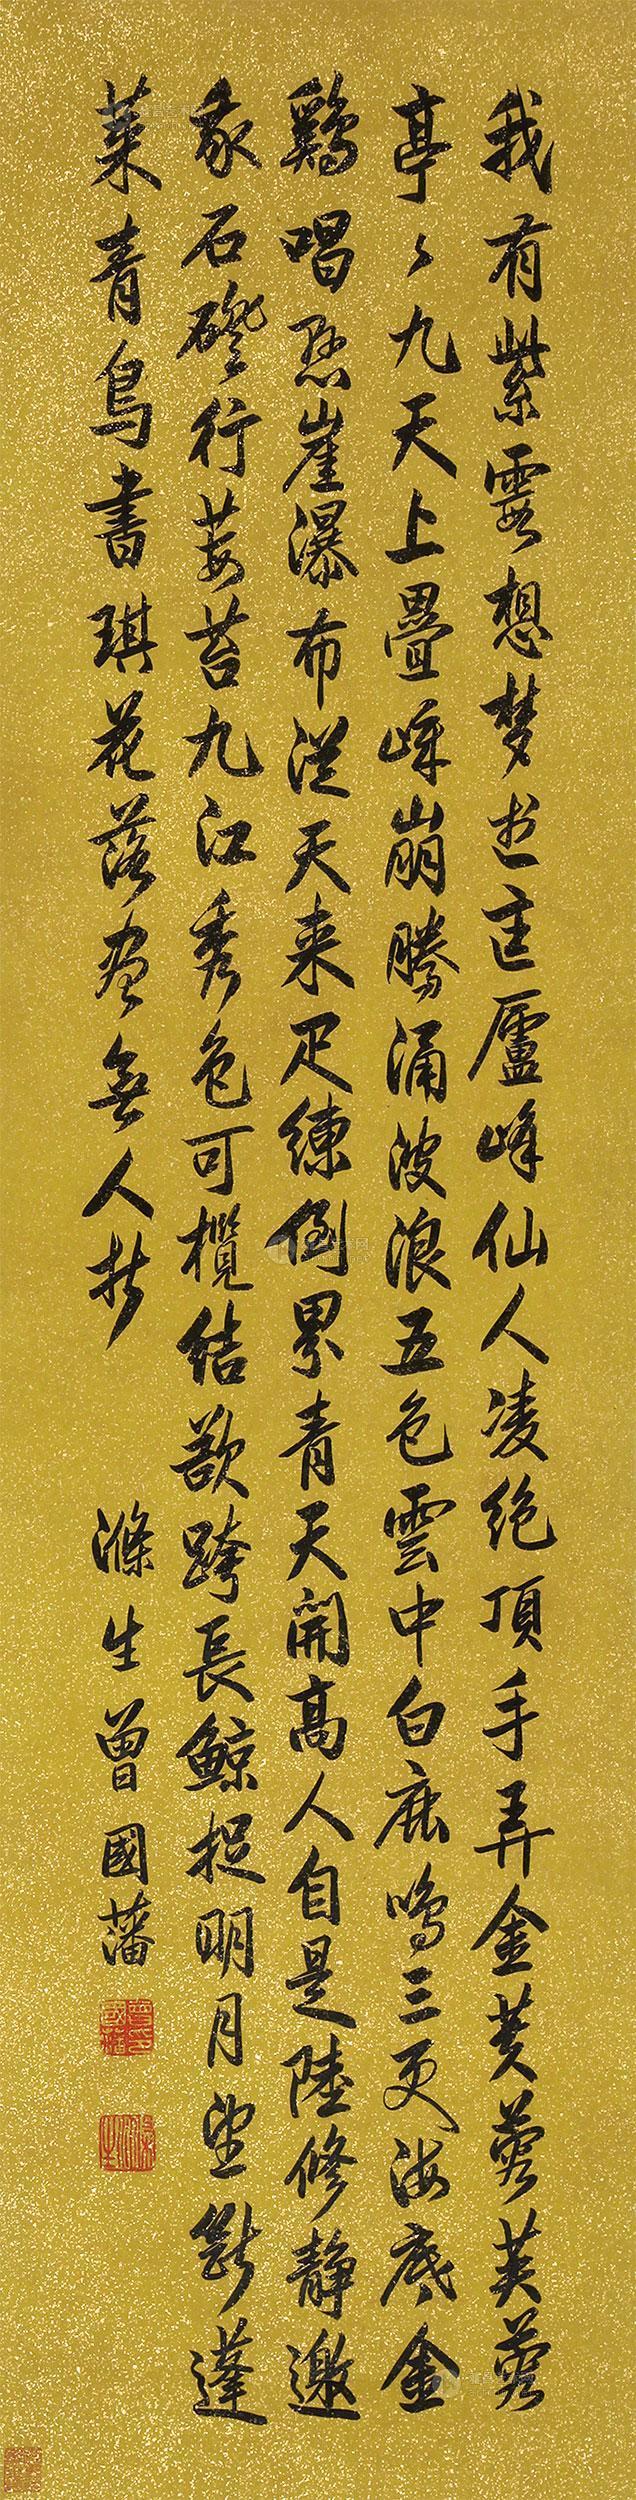 我有紫霞想夢想匡廬峰仙人凌絕頂手弄金芙蓉芙蓉
亭々九天上疊嶂崩騰涌波浪五色雲中白鹿鳴三更海底金
鷄唱懸崖瀑布從天来疋練倒界青天開高人自是陸修靜邀
我石磴行莓苔九江秀色可攬結欲跨長鯨捉明月望斷蓬
萊青鳥書琪花落盡無人折
滌生曾國藩